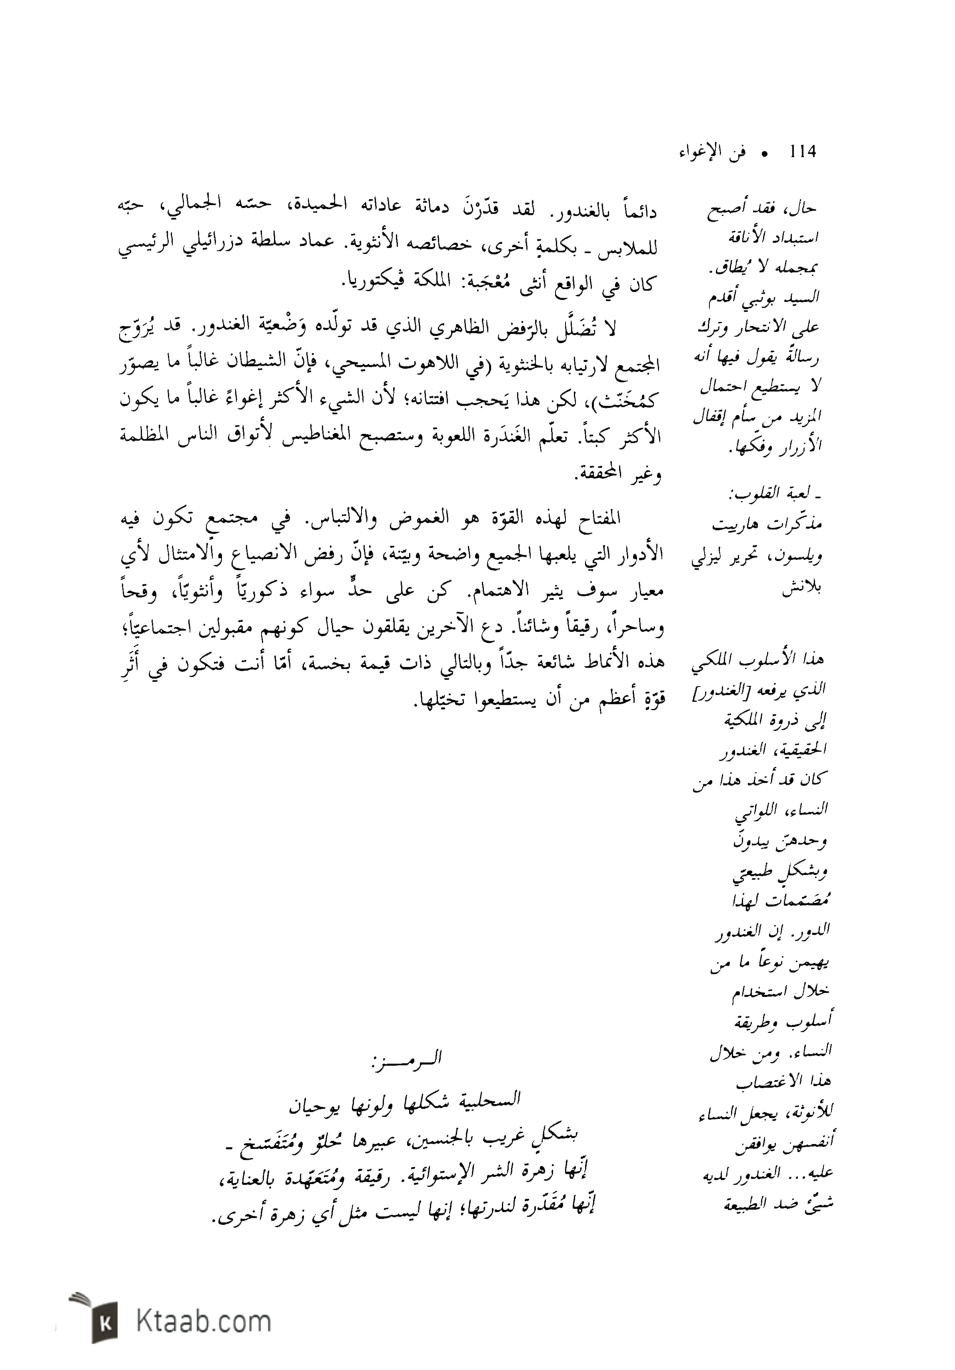 114 • فن الإغواء
دائماً بالغندور. لقد قدّرْنَ دماثة عاداته الحميدة، حسّه الجمالي، حبّه
للملابس ـ بكلمةٍ أخرى، خصائصه الأنثوية. عماد سلطة دزرائيلي الرئيسي
كان في الواقع أنثى مُعْجَبة: الملكة ڤيكتوريا.
لا تُضَلَّل بالرّفض الظاهري الذي قد تولّده وَضْعيّة الغندور. قد يُرَوّج
المجتمع لارتيابه بالخنثوية (في اللاهوت المسيحي، فإنّ الشيطان غالباً ما يصوّر
كمُخَنّث)، لكن هذا يَحجب افتتانه؛ لأن الشيء الأكثر إغواءً غالباً ما يكون
الأكثر كبتاً. تعلّم الغَندَرة اللعوبة وستصبح المغناطيس لأتواق الناس المظلمة
وغير المحققة.
المفتاح لهذه القوّة هو الغموض والالتباس. في مجتمعٍ تكون فيه
الأدوار التي يلعبها الجميع واضحة وبيّنة، فإنّ رفض الانصياع والامتثال لأي
معيار سوف يثير الاهتمام. كن على حدٍّ سواء ذكوريّاً وأنثويّاً، وقحاً
وساحراً، رقيقاً وشائناً. دع الآخرين يقلقون حيال كونهم مقبولين اجتماعيّاً؛
هذه الأنماط شائعة جدّاً وبالتالي ذات قيمة بخسة، أمّا أنت فتكون في أَثَرِ
قوّةٍ أعظم من أن يستطيعوا تخيّلها.
الـرمـــز:
السحلبية شكلها ولونها يوحيان
بشكلٍ غريب بالجنسين، عبيرها حُلوٌ ومُتَفَسّخ ـ
إنّها زهرة الشر الإستوائية. رقيقة ومُتَعَهّدة بالعناية،
إنّها مُقَدّرة لندرتها؛ إنها ليست مثل أي زهرة أخرى.
حال، فقد أصبح
استبداد الأناقة
بمجمله لا يُطاق.
السيد بوثبي أقدم
على الانتحار وترك
رسالةً يقول فيها أنه
لا يستطيع احتمال
المزيد من سأم إقفال
الأزرار وفكّها.
ـ لعبة القلوب:
مذكّرات هارييت
ويلسون، تحرير ليزلي
بلانش
هذا الأسلوب الملكي
الذي يرفعه [الغندور]
إلى ذروة الملكيّة
الحقيقية، الغندور
كان قد أخذ هذا من
النساء، اللواتي
وحدهنّ يبدونَ
وبشكلٍ طبيعيّ
مُصَمّمات لهذا
الدور. إن الغندور
يهيمن نوعاً ما من
خلال استخدام
أسلوب وطريقة
النساء. ومن خلال
هذا الاغتصاب
للأنوثة، يجعل النساء
أنفسهن يوافقن
عليه... الغندور لديه
شيئٌ ضد الطبيعة
Ktaab.com